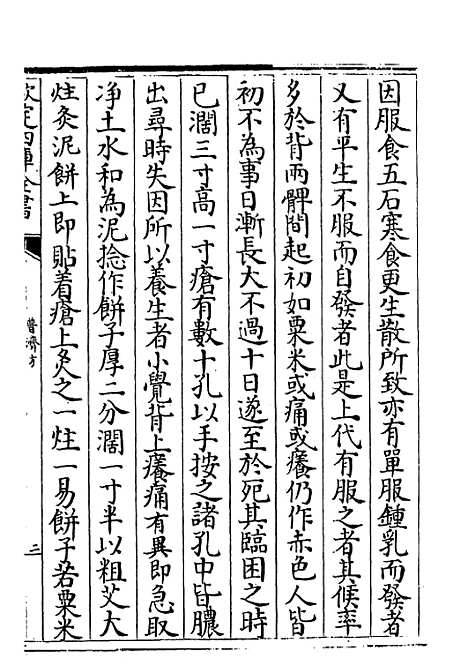 因服食五石寒食更生散所致亦有單服鍾乳而發者
又有平生不服而自發者此是上代有服之者其候率
多於背兩髀間起初如粟米或痛或癢仍作赤色人皆
初不為事日漸長大不過十日遂至於死其臨困之時
已濶三寸高一寸瘡有數十孔以手按之諸孔中皆膿
出尋時失因所以養生者小覺背上癢痛有異即急取
净土水和為泥捻作餅子厚二分濶一寸半以粗艾大
炷灸泥餅上即貼着瘡上灸之一炷一易餅子若粟米
欽定四庫全書
普濟方
三